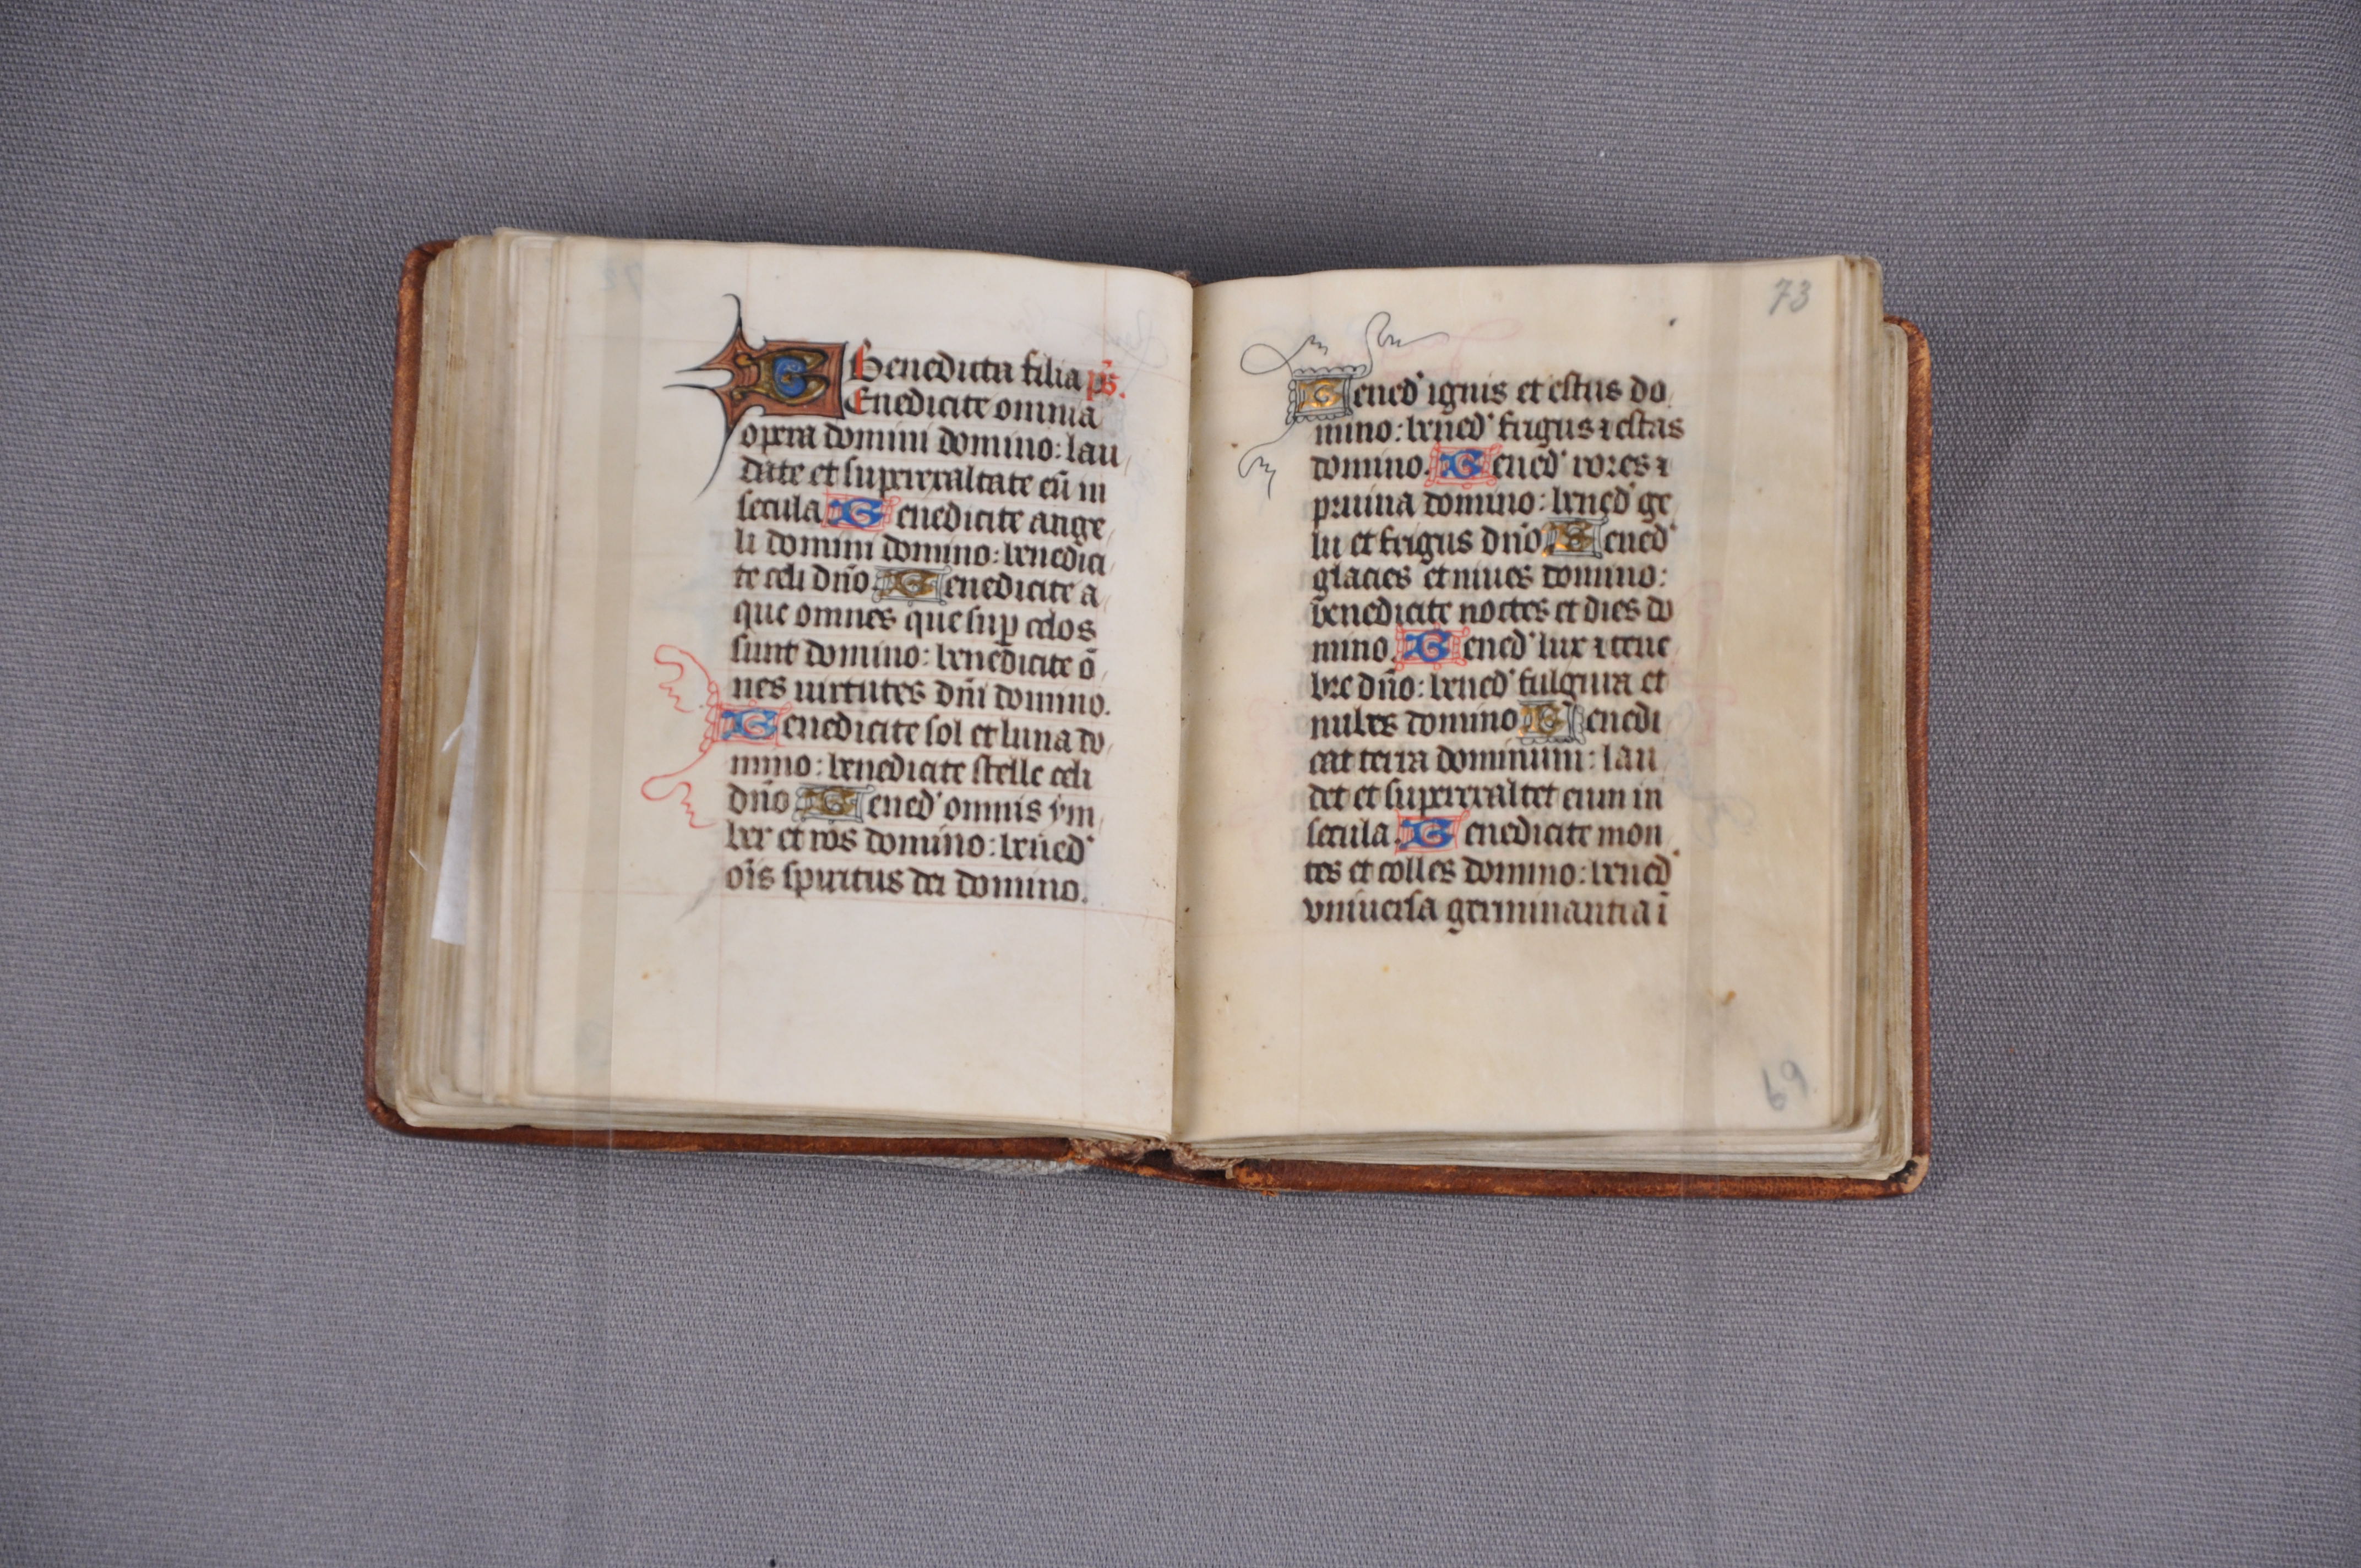 Benedicta filia ps̄.
Benedicite omnia
opera domini domino: lau
date et superexaltate eū in
secula Benedicite ange
li domini domino: benedici
te celi dn̄o Benedicite a
que omnes que sup celos
sunt domino: benedicite ō
nes uirtutes dn̄i domino.
Benedicite sol et luna do
mino: benedicite stelle celi
dn̄o Bened' omnis ym
ber et ros domino: bened'
ois̄ spiritus dei domino.
73
Bened' ignis et estus do
mino: bened' frigus ⁊ estas
domino. Bened' rores ⁊
pruina domino: bened' ge
lu et frigus dn̄o Bened'
glacies et niues domino:
benedicite noctes et dies do
mino. Bened' lux ⁊ tene
bre dn̄o: bened' fulgura et
nubes domino Benedi
cat terra dominum: lau
det et superexaltet eum in
secula. Benedicite mon
tes et colles domino: bened'
vniuersa germinantia ī
69